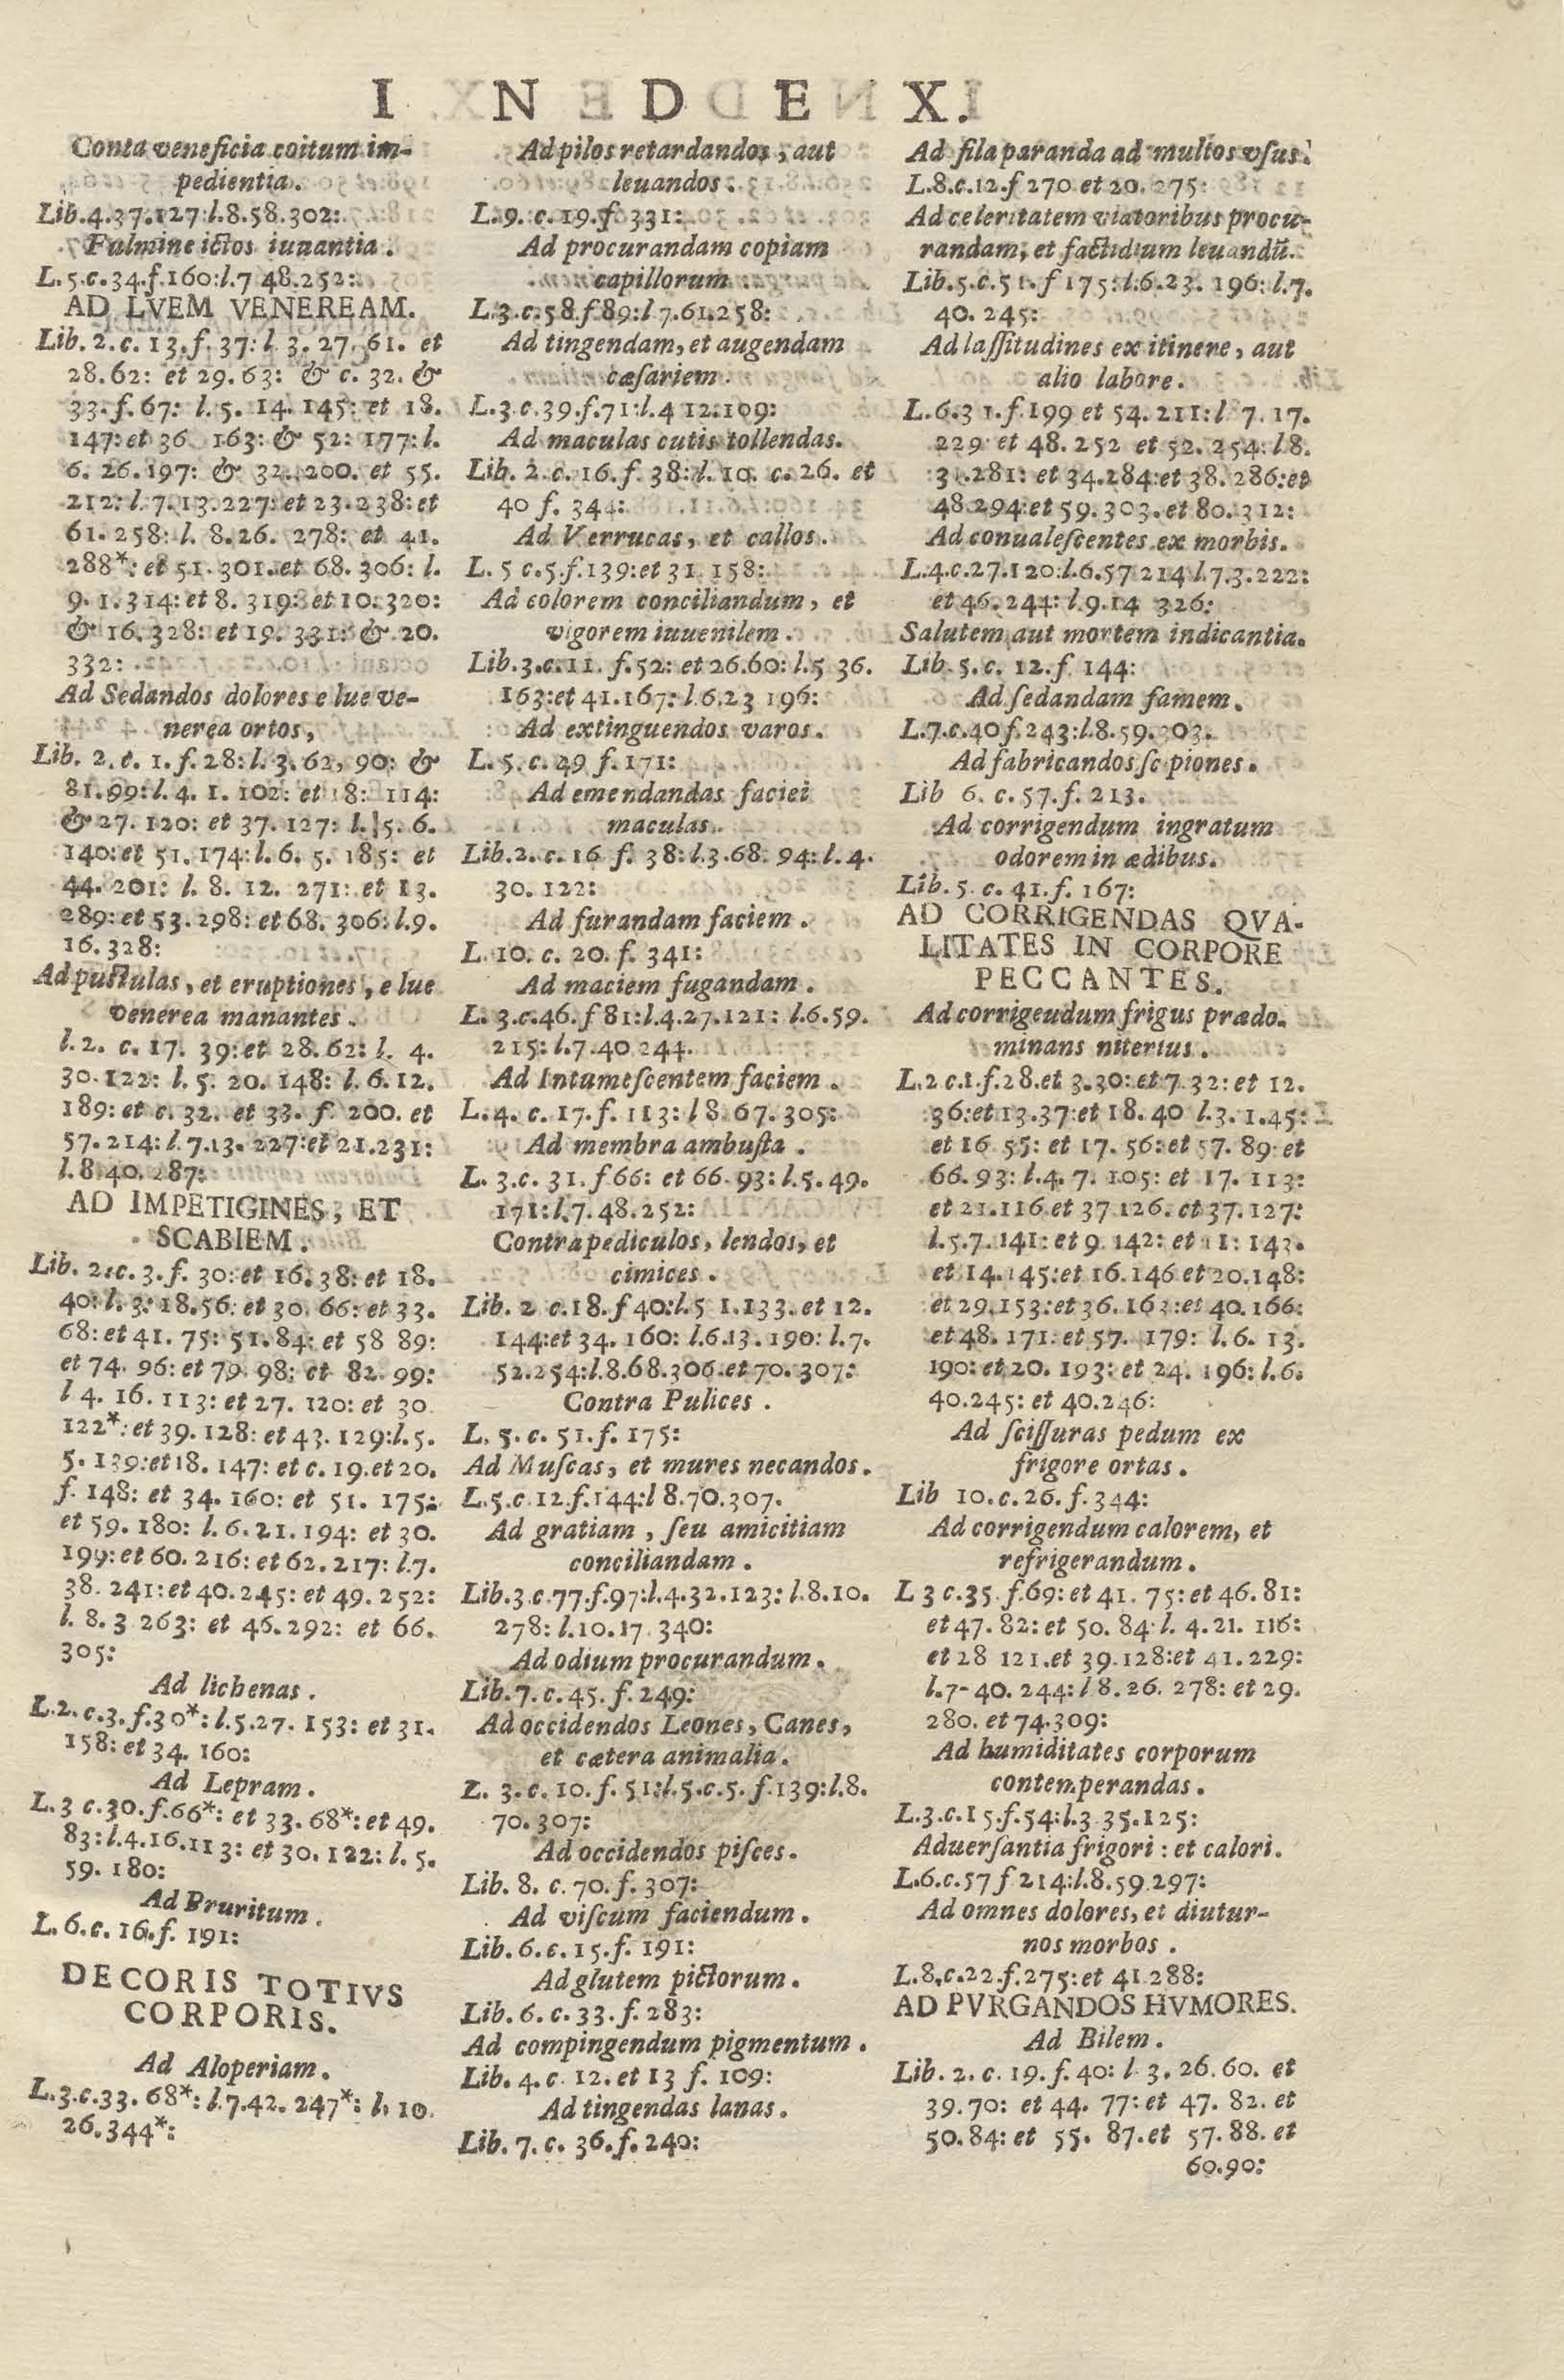 I N D E X.
Conta veneficia coitum im-
pedientia.
Lib. 4. 37. 127: l. 8. 58. 302:
Fulmine ictos iuuantia.
L. 5. c. 34. f. 160: l. 7 48. 252:
AD LVEM VENEREAM.
Lib. 2. c. 13. f. 37: l. 3. 27. 61. et
28. 62: et 29. 63: & c. 32. &
33. f. 67: l. 5. 14. 145: et 18.
147: et 36 163: & 52: 177: l.
6. 26. 197: & 32. 200. et 55.
212: l. 7. 13. 227: et 23. 238: et
61. 258: l. 8. 26. 278: et 41.
288*: et 51. 301. et 68. 306: l.
9. 1. 314: et 8. 319: et 10. 320:
& 16. 328: et 19. 331: & 20.
332:
Ad Sedandos dolores e lue ve-
nerea ortos,
Lib. 2. c. 1. f. 28: l. 3. 62, 90: &
81. 99: l. 4. 1. 102: et 18: 114:
& 27. 120: et 37. 127: l. 5. 6.
140: et 51. 174: l. 6. 5. 185: et
44. 201: l. 8. 12. 271: et 13.
289: et 53. 298: et 68. 306: l. 9.
16. 328:
Ad pustulas, et eruptiones, e lue
venerea manantes.
l. 2. c. 17. 39: et 28. 62: l. 4.
30. 122: l. 5. 20. 148: l. 6. 12.
189: et c. 32. et 33. f. 200. et
57. 214: l. 7. 13. 227: et 21. 231:
l. 8 40. 287:
AD IMPETIGINES, ET
SCABIEM.
Lib. 2. c. 3. f. 30: et 16. 38: et 18.
40: l. 3: 18. 56: et 30. 66: et 33.
68: et 41. 75: 51. 84: et 58 89:
et 74. 96: et 79. 98: et 82. 99:
l 4. 16. 113: et 27. 120: et 30
122*: et 39. 128: et 43. 129: l. 5.
5. 139: et 18. 147: et c. 19. et 20.
f. 148: et 34. 160: et 51. 175:
et 59. 180: l. 6. 21. 194: et 30.
199: et 60. 216: et 62. 217: l. 7.
38. 241: et 40. 245: et 49. 252:
l. 8. 3 263: et 46. 292: et 66.
305:
Ad lichenas.
L. 2. c. 3. f. 30*: l. 5. 27. 153: et 31.
158: et 34. 160:
Ad Lepram.
L. 3 c. 30. f. 66*: et 33. 68*: et 49.
83: l. 4. 16. 113: et 30. 122: l. 5.
59. 180:
Ad Pruritum.
L. 6. c. 16. f. 191:
DECORIS TOTIVS
CORPORIS.
Ad Aloperiam.
L. 3. c. 33. 68*: l. 7. 42. 247*: l. 10
26. 344*:
Ad pilos retardandos, aut
leuandos.
L. 9. c. 19. f. 331:
Ad procurandam copiam
capillorum.
L. 3. c. 58. f 89: l 7. 61. 258:
Ad tingendam, et augendam
cæsariem.
L. 3. c. 39. f. 71: l. 4 12. 109:
Ad maculas cutis tollendas.
Lib. 2. c. 16. f. 38: l. 10. c. 26. et
40 f. 344:
Ad Verrucas, et callos.
L. 5 c. 5. f. 139: et 31. 158:
Ad colorem conciliandum, et
vigorem iuuenilem.
Lib. 3. c. 11. f. 52: et 26. 60: l. 5 36.
163: et 41. 167: l. 6. 23 196:
Ad extinguendos varos.
L. 5. c. 49 f. 171:
Ad emendandas faciei
maculas.
Lib. 2. c. 16 f. 38: l. 3. 68. 94: l. 4.
30. 122:
Ad furandam faciem.
L. 10. c. 20. f. 341:
Ad maciem fugandam.
L. 3. c. 46. f 81: l. 4. 27. 121: l. 6. 59.
215: l. 7. 40 244.
Ad Intumescentem faciem.
L. 4. c. 17. f. 113: l 8. 67. 305:
Ad membra ambusta.
L. 3. c. 31. f 66: et 66. 93: l. 5. 49.
171: l. 7. 48. 252:
Contra pediculos, lendos, et
cimices.
Lib. 2 c. 18. f 40: l. 5 1. 133. et 12.
144: et 34. 160: l. 6. 13. 190: l. 7.
52. 254: l. 8. 68. 306. et 70. 307:
Contra Pulices.
L. 5. c. 51. f. 175:
Ad Muscas, et mures necandos.
L. 5. c 12. f. 144: l 8. 70. 307.
Ad gratiam, seu amicitiam
conciliandam.
Lib. 3. c. 77. f. 97: l. 4. 32. 123: l. 8. 10.
278: l. 10. 17 340:
Ad odium procurandum.
Lib. 7. c. 45. f. 249:
Ad occidendos Leones, Canes,
et cætera animalia.
L. 3. c. 10. f. 51: l. 5. c. 5. f. 139: l. 8.
70. 307:
Ad occidendos pisces.
Lib. 8. c. 70. f. 307:
Ad viscum faciendum.
Lib. 6. c. 15. f. 191:
Ad glutem pictorum.
Lib. 6. c. 33. f. 283:
Ad compingendum pigmentum.
Lib. 4. c 12. et 13 f. 109:
Ad tingendas lanas.
Lib. 7. c. 36. f. 240:
Ad fila paranda ad multos vsus.
L. 8. c. 12. f 270 et 20. 275:
Ad celeritatem viatoribus procu-
randam, et fastidium leuandũ.
Lib. 5. c. 51. f 175: l. 6. 23. 196: l. 7.
40. 245:
Ad lassitudines ex itinere, aut
alio labore.
L. 6. 3 1. f. 199 et 54. 211: l 7. 17.
229 et 48. 252 et 52. 254: l 8.
31. 281: et 34. 284: et 38. 286: et
48. 294: et 59. 303. et 80. 312:
Ad conualescentes ex morbis.
L. 4. c. 27. 120: l. 6. 57 214: l. 7. 3. 222:
et 46. 244: l. 9. 14 326:
Salutem aut mortem indicantia.
Lib. 5. c. 12. f. 144:
Ad sedandam famem.
L. 7. c. 40 f. 243: l. 8. 59. 303.
Ad fabricandos scipiones.
Lib 6. c. 57. f. 213.
Ad corrigendum ingratum
odorem in ædibus.
Lib. 5. c. 41. f. 167:
AD CORRIGENDAS QVA-
LITATES IN CORPORE
PECCANTES.
Ad corrigeudum frigus prædo-
minans niterius.
L. 2 c. 1. f. 28. et 3. 30: et 7. 32: et 12.
36: et 13. 37: et 18. 40 l. 3. 1. 45:
et 16 55: et 17. 56: et 57. 89: et
66. 93: l. 4. 7. 105: et 17. 113:
et 21. 116 et 37 126. et 37. 127:
l. 5. 7. 141: et 9. 142: et 11: 143.
et 14. 145: et 16. 146 et 20. 148:
et 29. 153: et 36. 163: et 40. 166:
et 48. 171: et 57. 179: l. 6. 13.
190: et 20. 193: et 24. 196: l. 6.
40. 245: et 40. 246:
Ad scissuras pedum ex
frigore ortas.
Lib 10. c. 26. f. 344:
Ad corrigendum calorem, et
refrigerandum.
L 3 c. 35. f. 69: et 41. 75: et 46. 81:
et 47. 82: et 50. 84. l. 4. 21. 116:
et 28 121. et 39. 128: et 41. 229:
l. 7- 40. 244: l 8. 26. 278: et 29.
280. et 74. 309:
Ad humiditates corporum
contemperandas.
L. 3. c. 15. f. 54: l. 3 35. 125:
Aduersantia frigori: et calori.
L. 6. c. 57 f 214: l. 8. 59. 297:
Ad omnes dolores, et diutur-
nos morbos.
L. 8. c. 22. f. 275: et 41 288:
AD PVRGANDOS HVMORES.
Ad Bilem.
Lib. 2. c. 19. f. 40: l 3. 26. 60. et
39. 70: et 44. 77: et 47. 82. et
50. 84: et 55. 87. et 57. 88. et
60. 90: